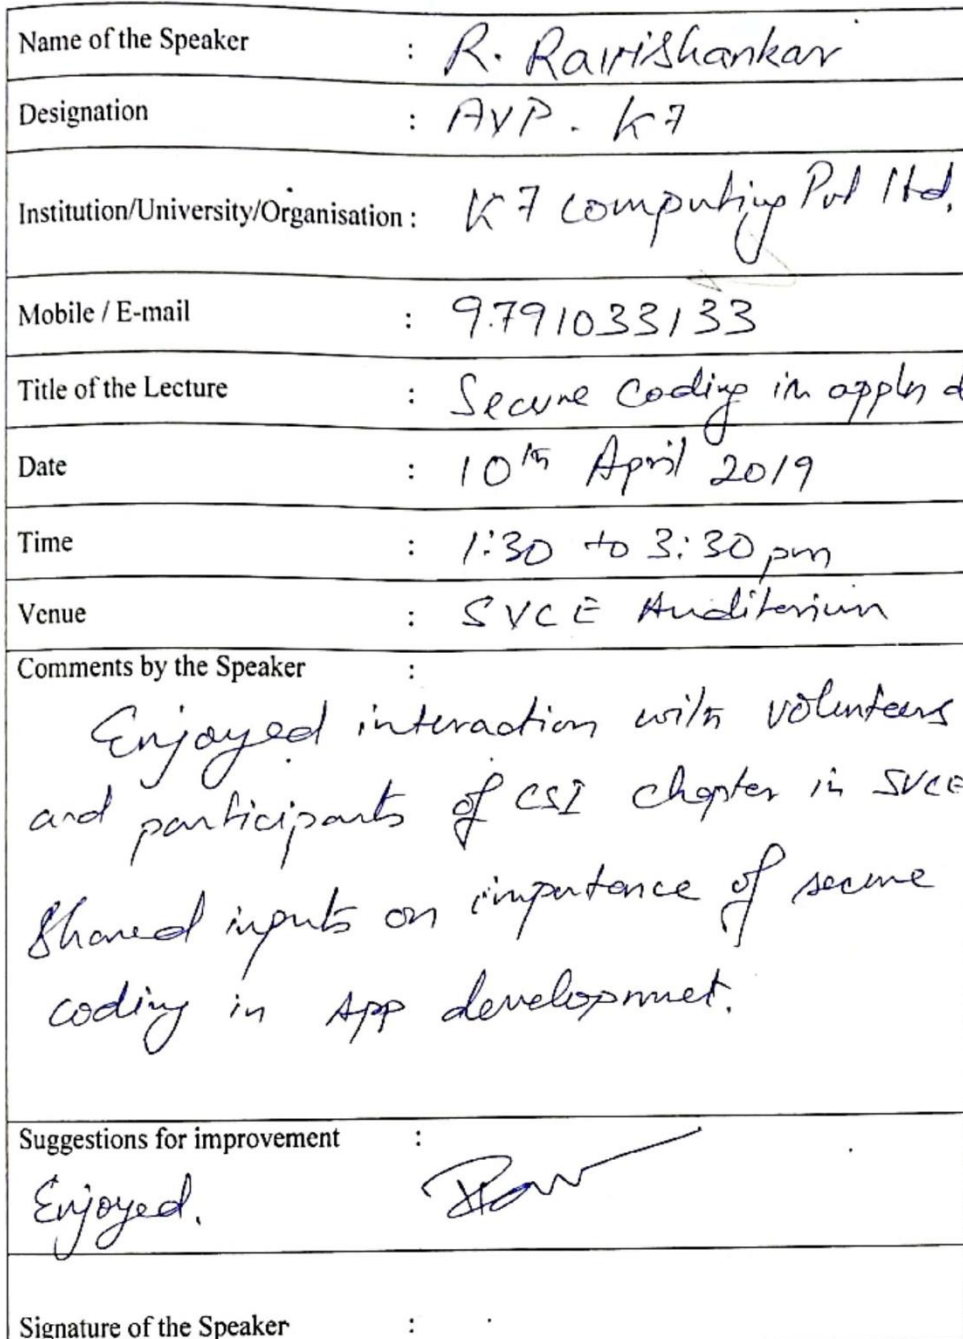 Name of the Speaker : R. Ravishankar
Designation : AVP. K7
Institution/University/Organisation : K7 computing Pvt ltd.
Mobile / E-mail : 9791033133
Title of the Lecture : Secure Coding in appln d
Date : 10th April 2019
Time : 1:30 to 3:30 pm
Venue : SVCE Auditorium
Comments by the Speaker :
Enjoyed interaction with volunteers
and participants of CSI chapter in SVCE
Shared inputs on importance of secure
coding in App developmnet.
Suggestions for improvement :
Enjoyed.
Signature of the Speaker :